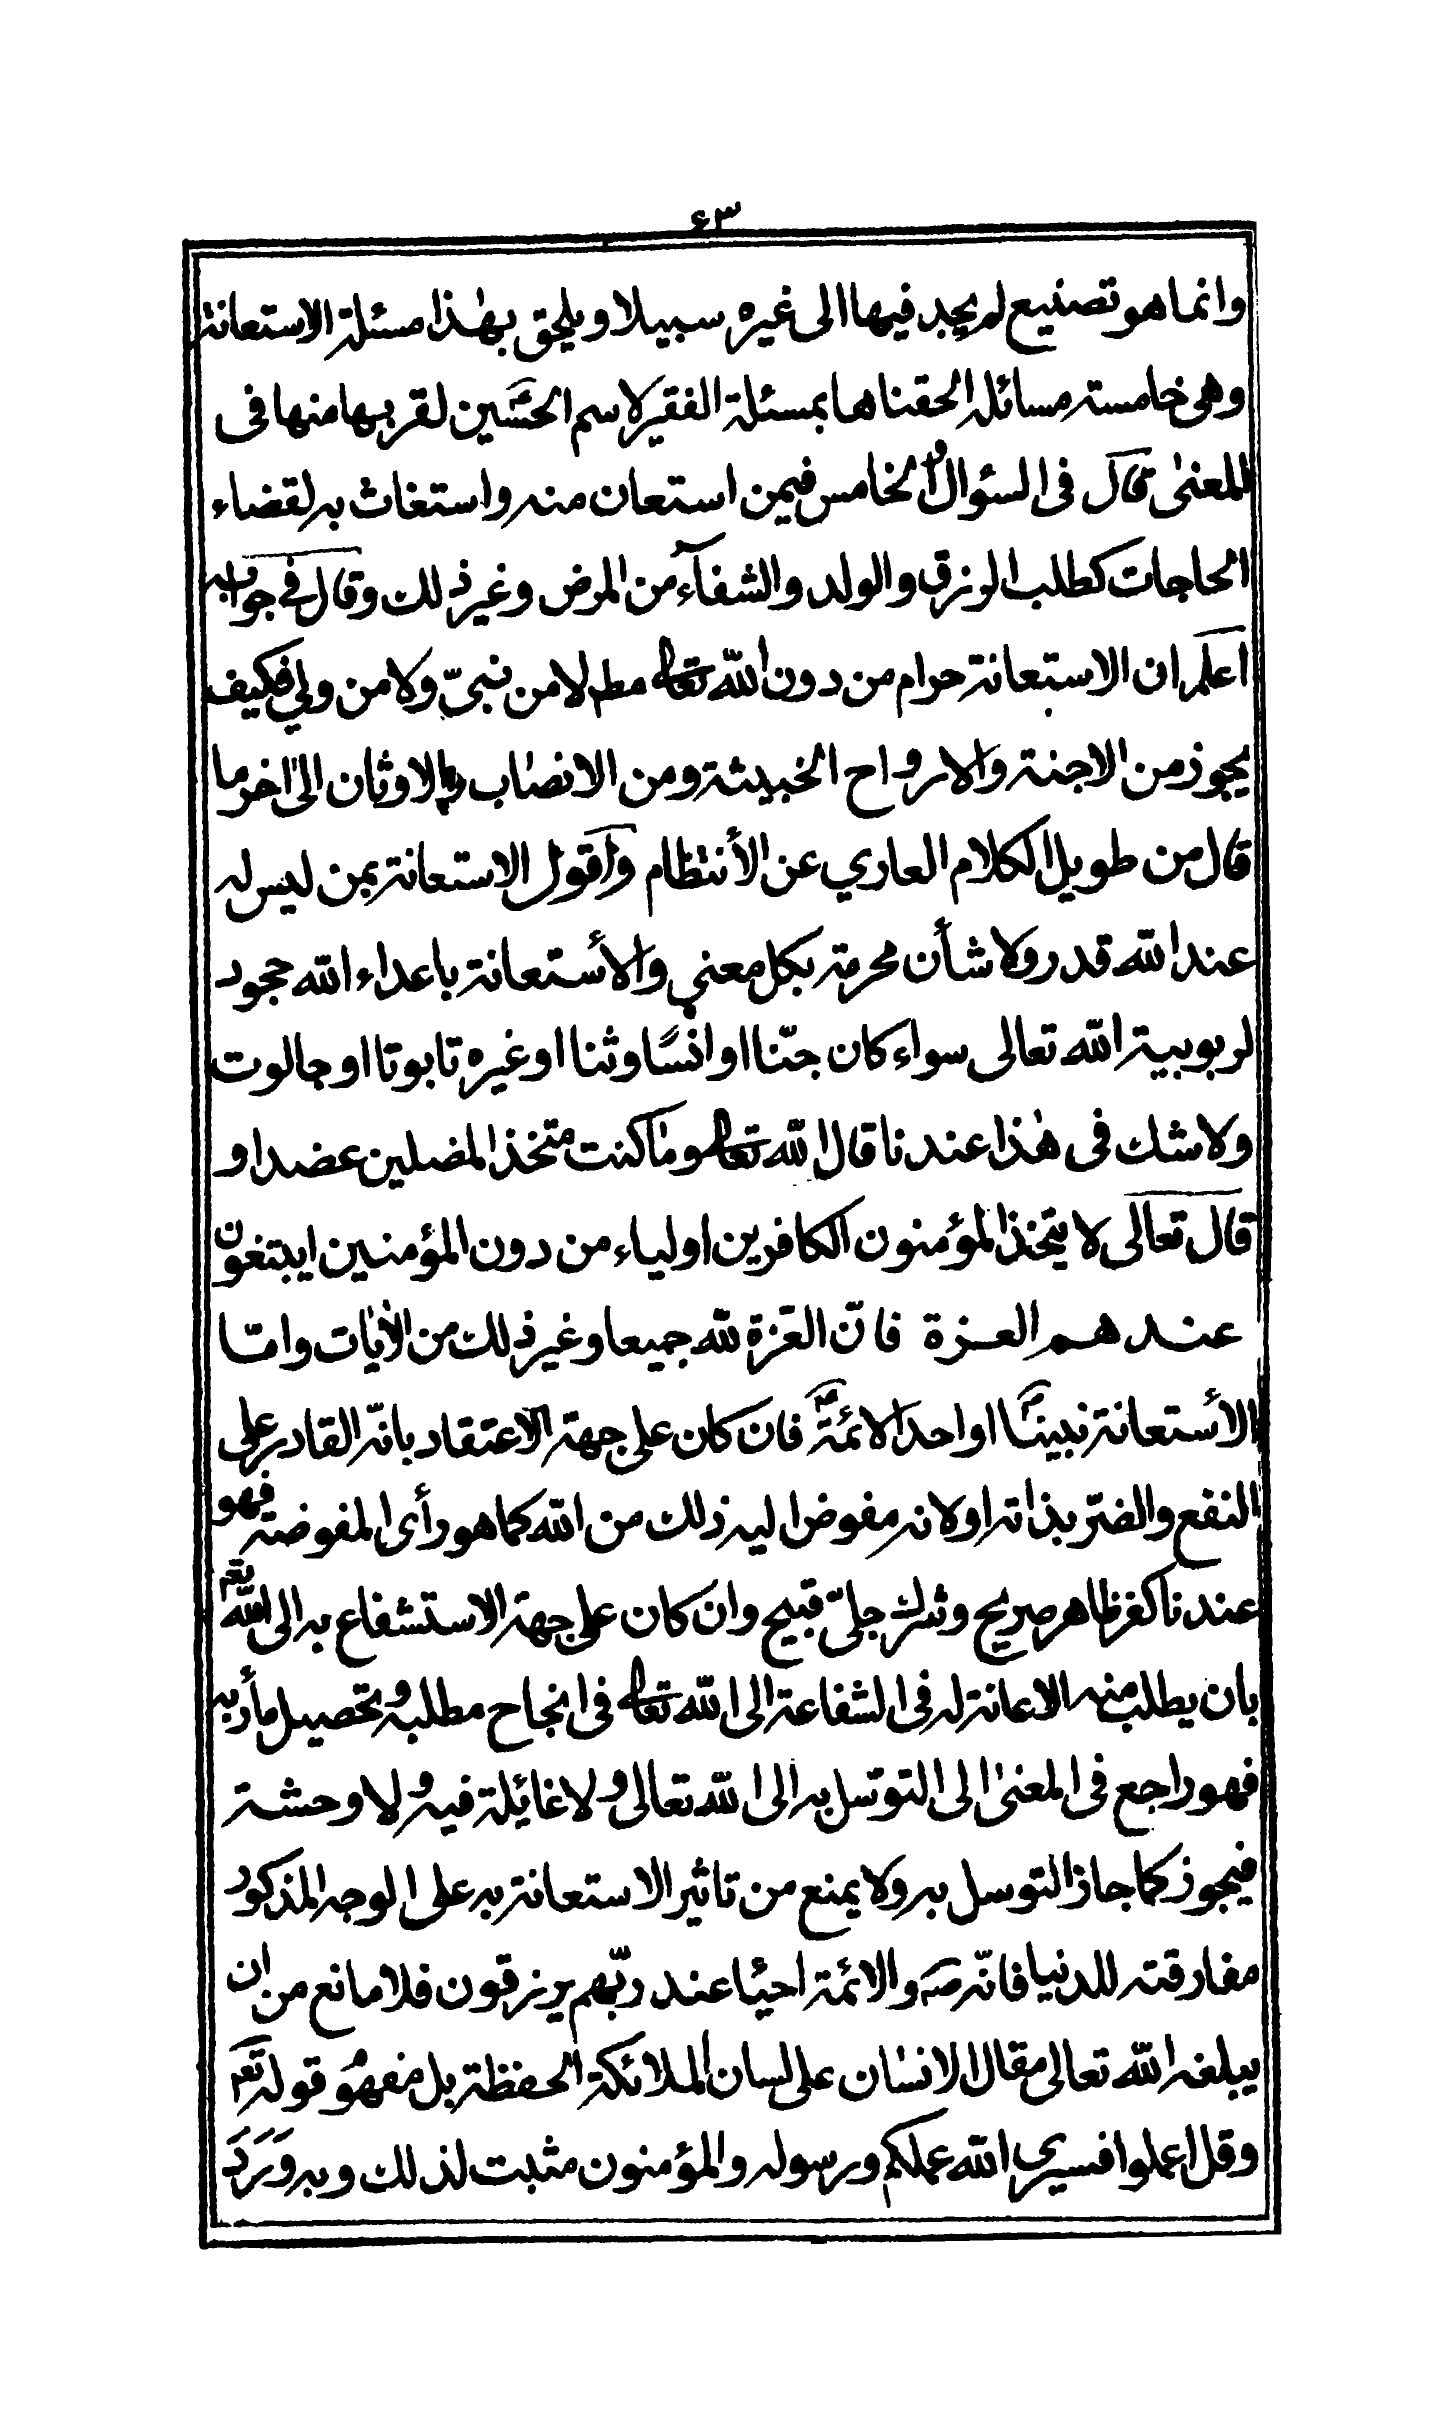 ٦٣
وانما هو تصنيع لم يجد فيها الى غيره سبيلا ويلحق بهذا مسئلة الاستعانة
وهى خامسة مسائله الحقناها بمسئلة الفقير لاسم الحسين لقربها منها فى
المعنى قال فى السؤال الخامس فيمن استعان منه واستغاث به لقضاء
الحاجات كطلب الرزق والولد والشفآء من المرض وغير ذلك وقال في جوابه
اعلم ان الاستعانة حرام من دون الله تعالى مطر لا من نبىّ ولا من ولي فكيف
يجوز من الاجنة والارواح الخبيثة ومن الانصاب والاوثان الى اخر ما
قال من طويل الكلام العاري عن الأنتظام واقول الاستعانة بمن ليس له
عند الله قدر ولا شأن محرمة بكل معني والأستعانة باعداء الله جحود
لربوبية الله تعالى سواء كان جنّنا او انسًا وثنا او غيره تابوتا او جالوت
ولا شك فى هذا عندنا قال الله تعالى وما كنت متخذ المضلين عضدا و
قال تعالى لا يتخذ المؤمنون الكافرين اولياء من دون المؤمنين ايبتغون
عندهم العزة فانّ العزّة لله جميعا وغير ذلك من الأيات وامّا
الأستعانة نبيناً او احد الائمة فان كان على جهة الاعتقاد بانّه القادر على
النفع والضرّ بذاته اولانه مفوض اليه ذلك من الله كما هو رأى المفوضة فهو
عندنا كفر ظاهر صريح وشرك جلىّ قبيح وان كان على جهة الاستشفاع به الى الله تعم
بان يطلب منه الاعانة له فى الشفاعة الى الله تعالى فى انجاح مطلبه وتحصيل مأربه
فهو راجع فى المعنى الى التوسّل به الى الله تعالى ولا غائلة فيه ولا وحشة
فيجوز كما جاز التوسل به ولا يمنع من تاثير الاستعانة به على الوجه المذكور
مفارقته للدنيا فانّه صه والائمة احيا عند ربّهم يرزقون فلا مانع من ان
يبلغه الله تعالى مقال الانسان على لسان الملائكة الحفظة بل مفهوم قوله تعم
وقل اعملوا فسيرى الله عملكم ورسوله والمؤمنون مثبت لذلك وبه وَرَدَ